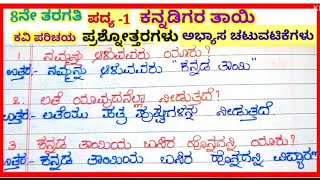 8ನೇ ತರಗತಿ ಪದ್ಯ -1 ಕನ್ನಡಿಗರ ತಾಯಿ
ಕವಿ ಪರಿಚಯ ಪ್ರಶ್ನೋತ್ತರಗಳು ಅಭ್ಯಾಸ ಚಟುವಟಿಕೆಗಳು
ನಮ್ಮನ್ನು ಆಳುವವರು ಯಾರು?
ಉತ್ತರ:- ನಮ್ಮನ್ನು ಆಳುವವರು "ಕನ್ನಡ ತಾಯಿ"
2. ಲತೆ ಯಾವುವನ್ನೆಲ್ಲಾ ನೀಡುತ್ತದೆ?
ಉತ್ತರ:- ಲತೆಯು ಪತ್ರ ಪುಷ್ಪಗಳನ್ನು ನೀಡುತ್ತದೆ.
3. ಕನ್ನಡ ತಾಯಿಯ ಬಸಿರ ಹೊನ್ನದನ್ನಿ ಯಾರು?
ಉತ್ತರ:- ಕನ್ನಡ ತಾಯಿಯ ಬಸಿರ ಹೊನ್ನದನ್ನಿ ವಿದ್ಯಾರಣ್ಯ